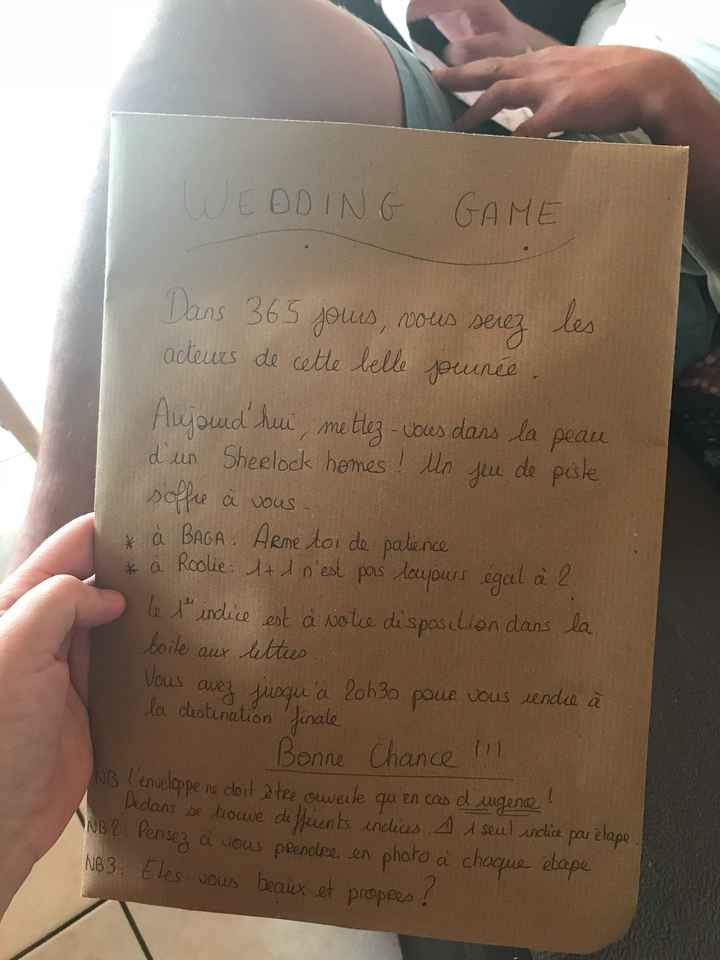 WEDDING GAME
Dans 365 jours, vous serez les
acteurs de cette belle journée.
Aujourd'hui, mettez-vous dans la peau
d'un Sherlock homes! Un jeu de piste
s'offre à vous.
* à BAGA. Arme toi de patience
* à Rookie: 1+1 n'est pas toujours égal à 2.
Le 1er indice est à votre disposition dans la
boite aux lettres.
Vous avez jusqu'à 20h30 pour vous rendre à
la destination finale
Bonne Chance !!!
NB L'enveloppe ne doit être ouverte qu'en cas d'urgence!
Dedans se trouve différents indices. ⚠ 1 seul indice par étape.
NB2: Pensez à vous prendre en photo à chaque étape
NB3: Êtes-vous beaux et propres?